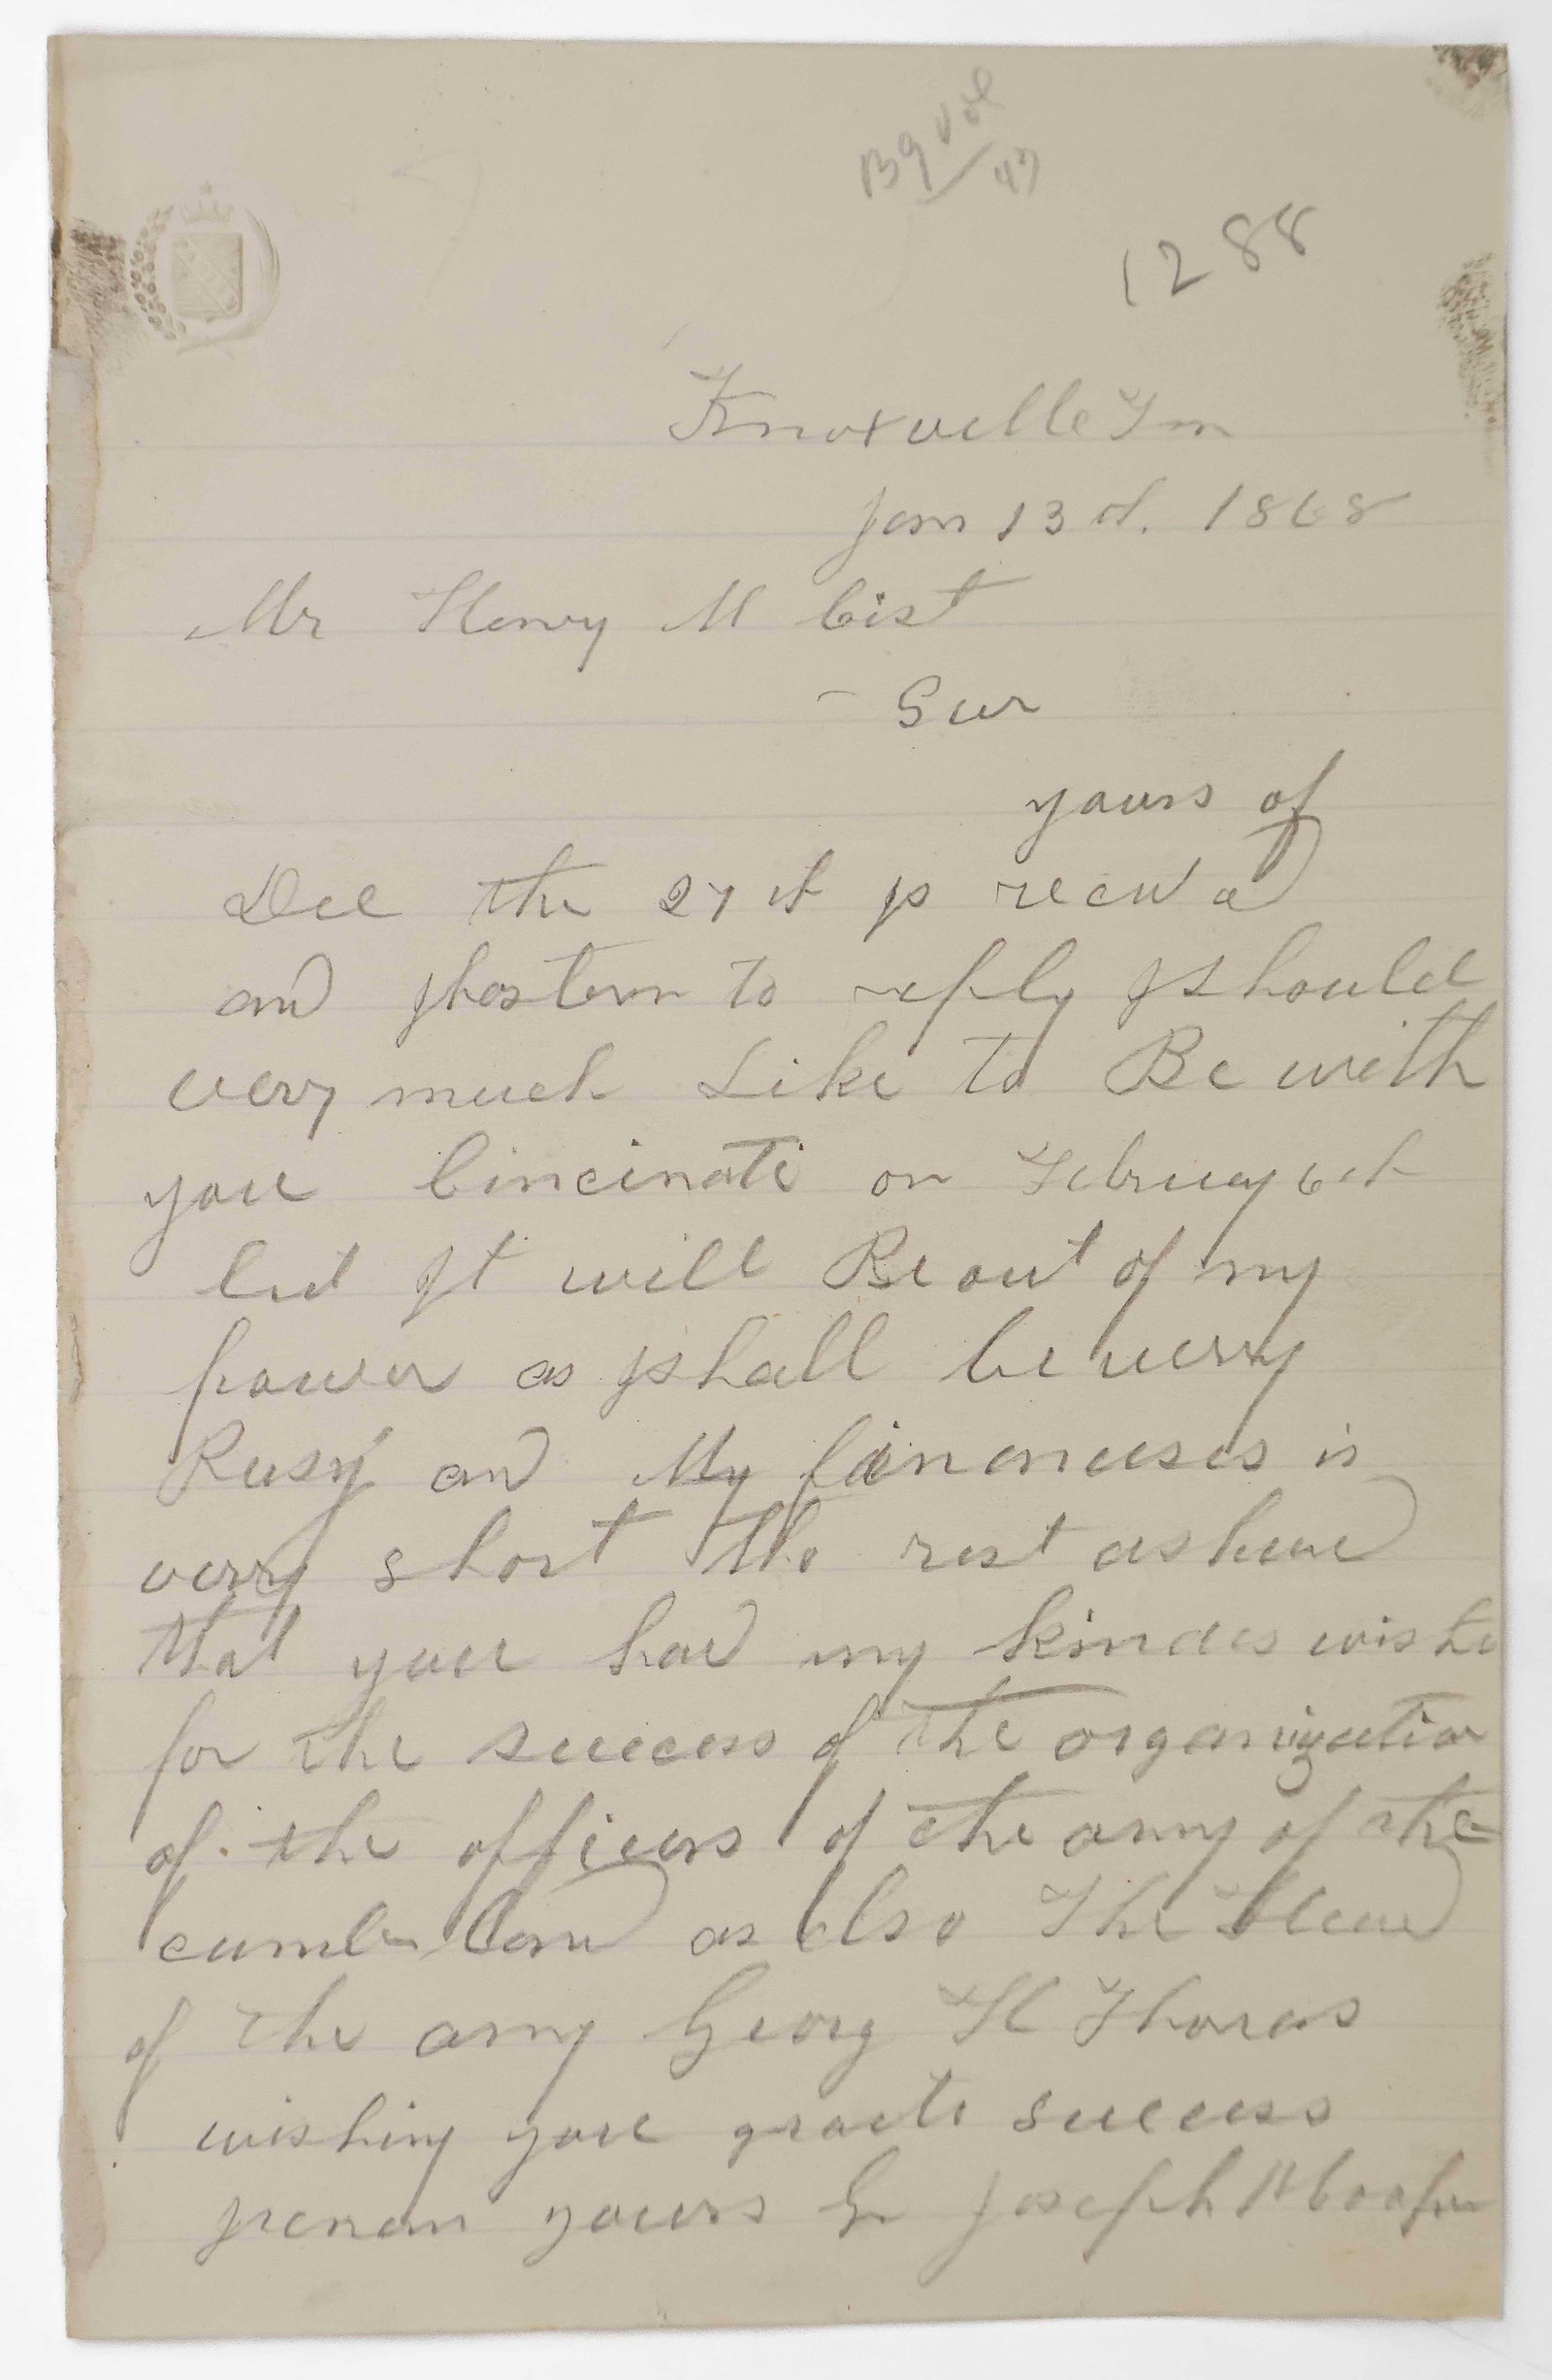 B g Vol
47
1288
Knoxville Tn
Jan 13 d. 1868
Mr Henry M Cist
Sur
yours of
Dec the 27 it I recivd
and I hasten to reply I should
very much Like to Be with
you Cincinati on Februay 6 it
but It will Be out of my
power as I shall be verry
Busy and My finanuses is
verry short The rest ashured
that you had my kindes wishe
for the success of the organization
of the officers of the army of the
cumberland as also The Head
of the army Georg H Thomas
wishing you grate success
I renan yours G Joseph A Cooper